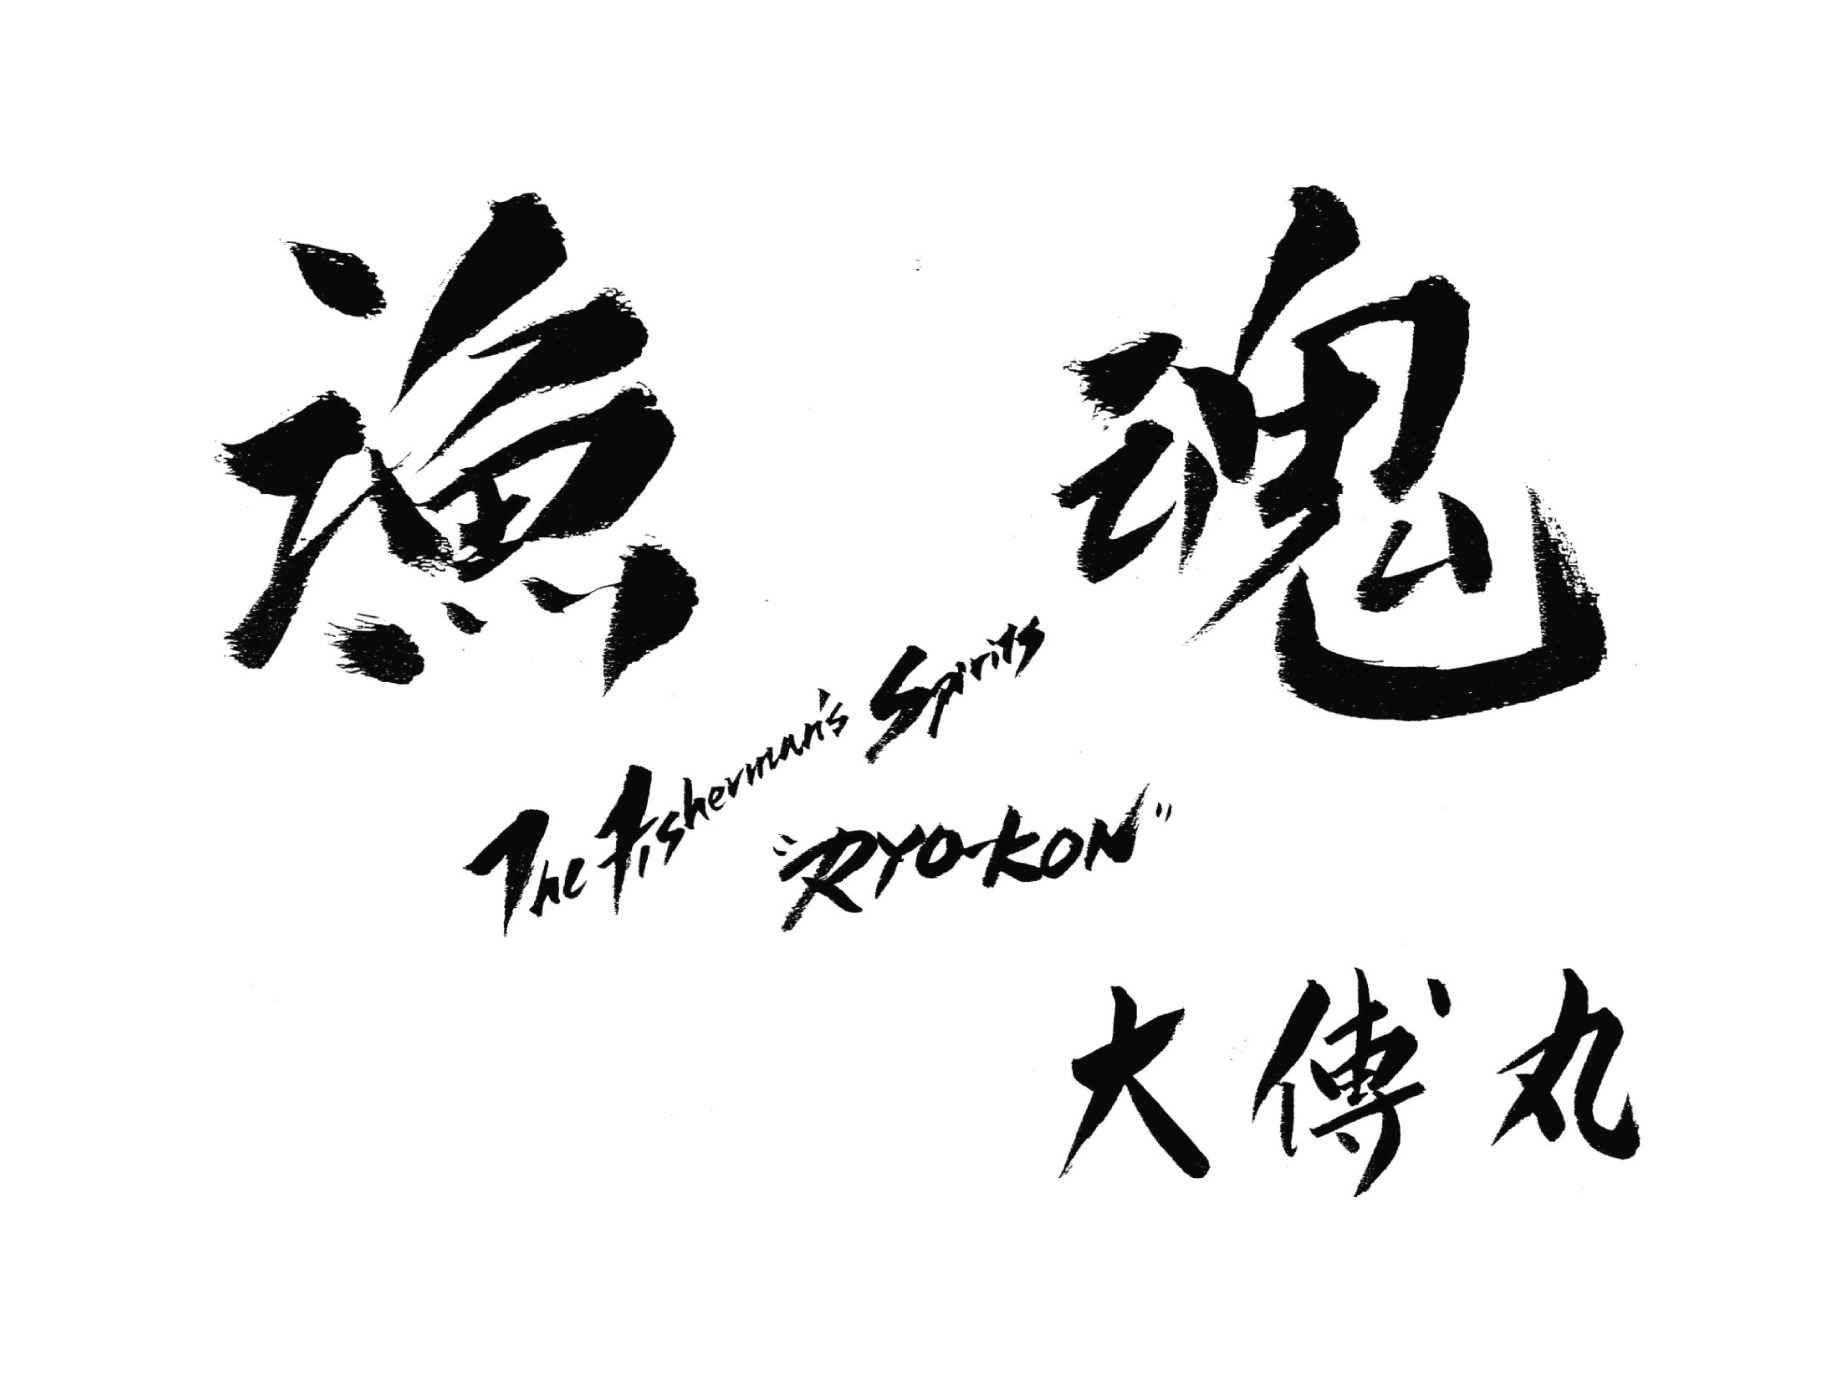 漁魂
The Fisherman's Spirits
"RYO-KON"
大傅丸